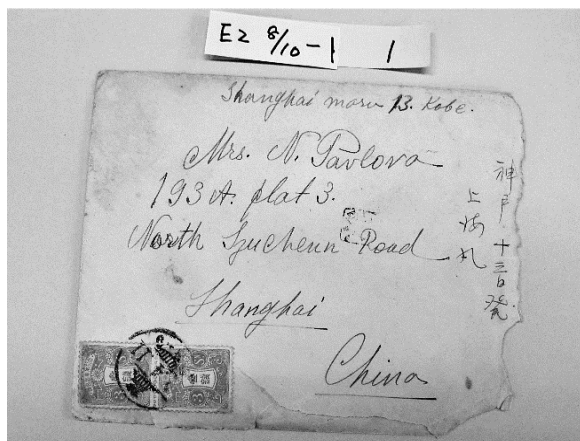 E2 8/10-1 1
Shanghai maru 13. Kobe.
Mrs. N. Pavlova
193 A. flat 3.
North Szechuen Road
Shanghai
China
神戸十三日発
上海丸